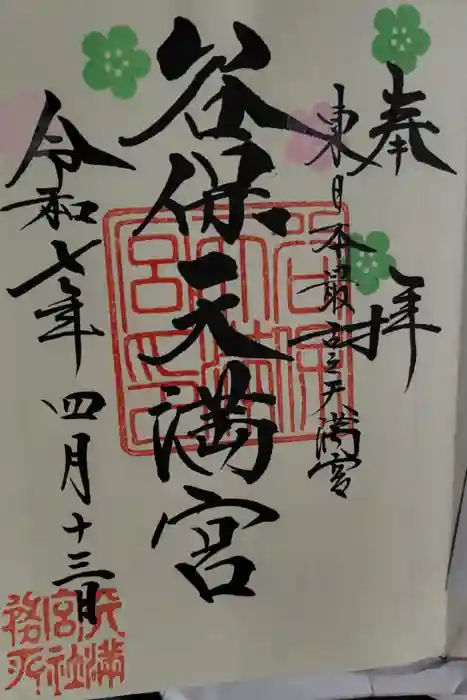 奉拝
東日本最古之天満宮
谷保天満宮
令和七年 四月十三日
谷保天満宮印
天満宮社務所